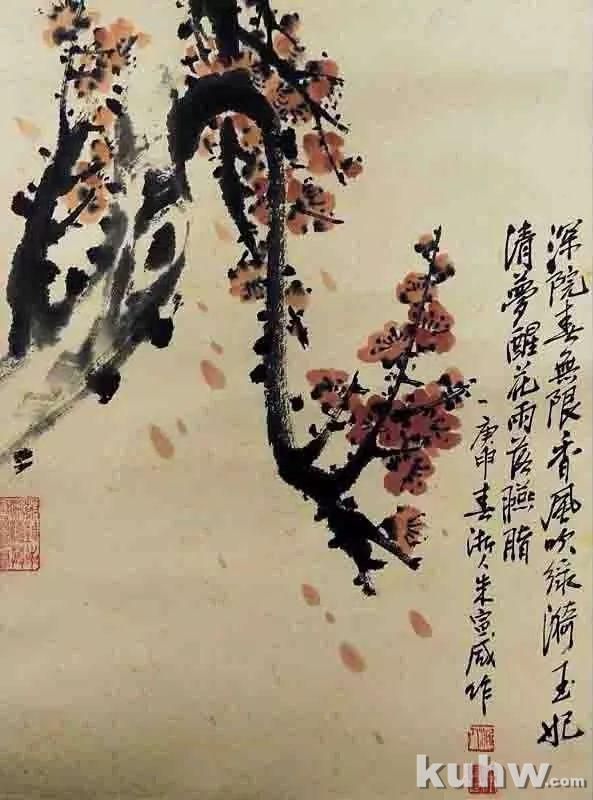 深院春無限香風吹綠漪玉妃
清夢醒花雨落臙脂
庚申春浙人朱宣咸作
kuhw.com